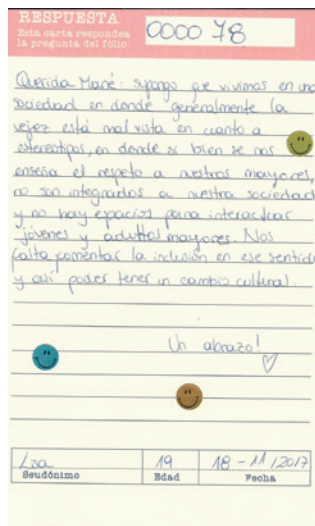 RESPUESTA
Esta carta responde a
la pregunta del folio
0000 78
Querida Mané: supongo que vivimos en una
sociedad en donde generalmente la
vejez está mal vista en cuanto a
estereotipos, en donde si bien se nos
enseña el respeto a nuestros mayores,
no son integrados a nuestra sociedad
y no hay espacios para interactuar
jóvenes y adultos mayores. Nos
falta fomentar la inclusión en ese sentido
y así poder tener un cambio cultural.
Un abrazo!
19 18-11/2017
Seudónimo Edad Fecha